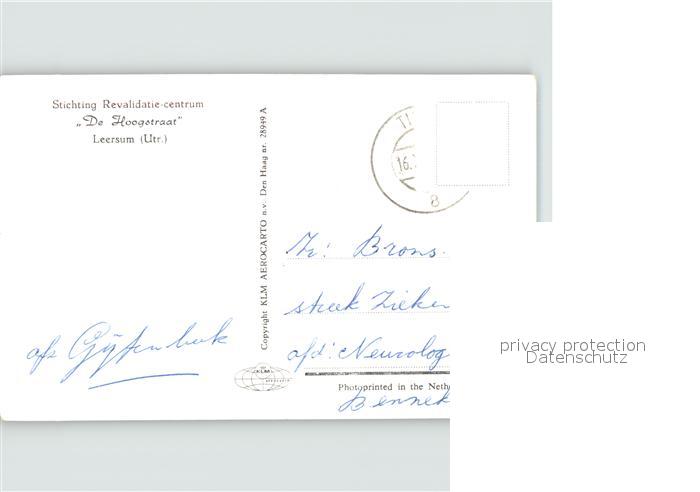 Stichting Revalidatie-centrum
„De Hoogstraat"
Leersum (Utr.)
Copyright KLM AEROCARTO n.v. Den Haag nr. 28949 A
TI
16.
8
Zr: Brons.
streek Zieken
afd: Neurolog
Bennek
afz
KLM
AEROCARTO
Photoprinted in the Neth
privacy protection
Datenschutz